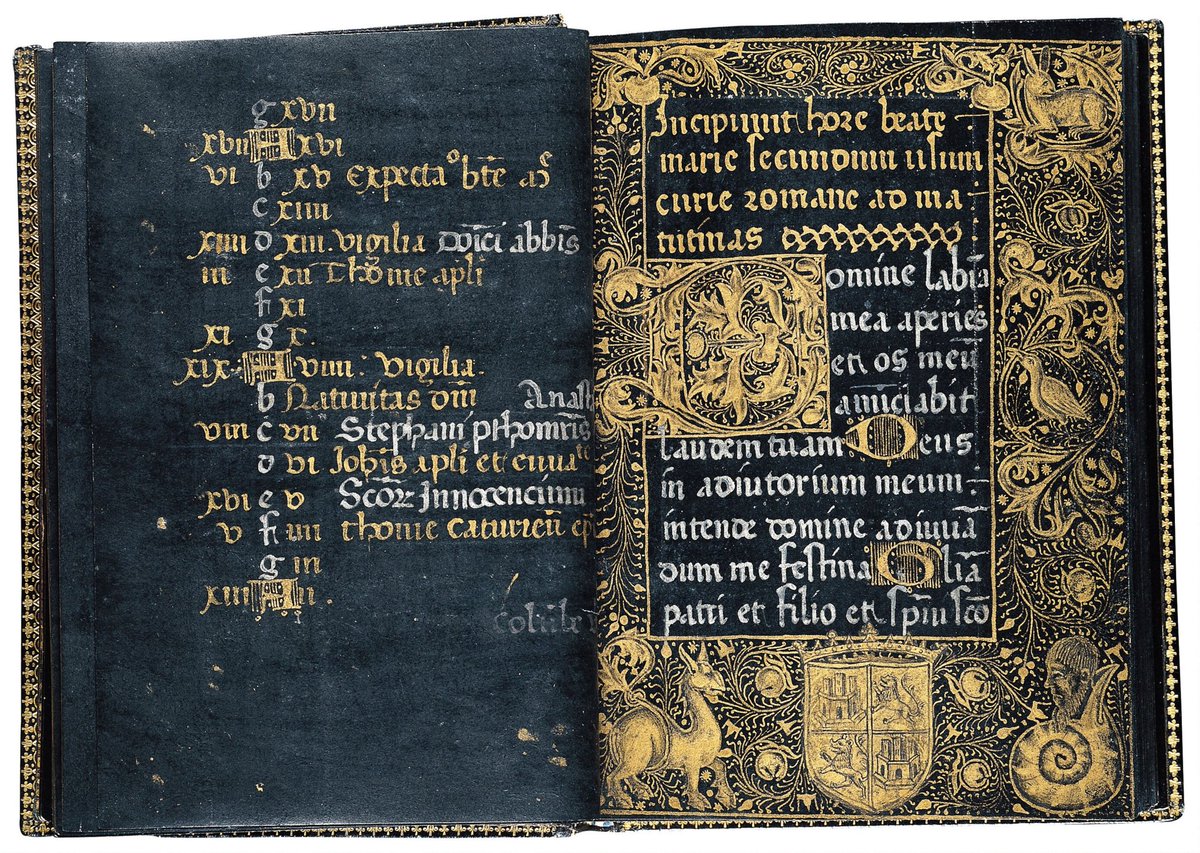 g xvii
xvii A xvi
vi b xv Expectaº bt̄e m̄
c xiiii
xiiii d xiii. vigilia
iii e xii Thome apl̄i
f xi
xi g x.
xix A viiii: vigilia.
b Nativitas dn̄i Anast
viii c vii Stephani pthom̄ris
d vi Joh̄is apl̄i et euua
xvi e v Sco₂ Innocencium
v f iiii thome
g iii
xiii A ii.
Incipiunt hore beate
marie secundum usum
curie romane ad ma
tutinas
Domine labia
mea aperies
et os meū
annūciabit
laudem tuam Deus
in adiutorium meum:
intende domine adiuuā
dum me festina Gl̄ia
patri et filio et sp̄iui sc̄o